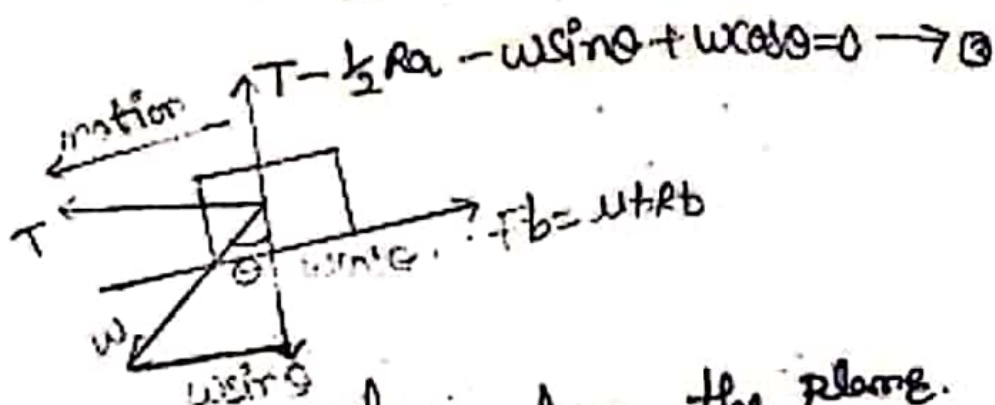 T - ½Ra - wsinθ + wcosθ = 0 → ③
motion
T
Fb = μbRb
θ
w
wsinθ
the plane.